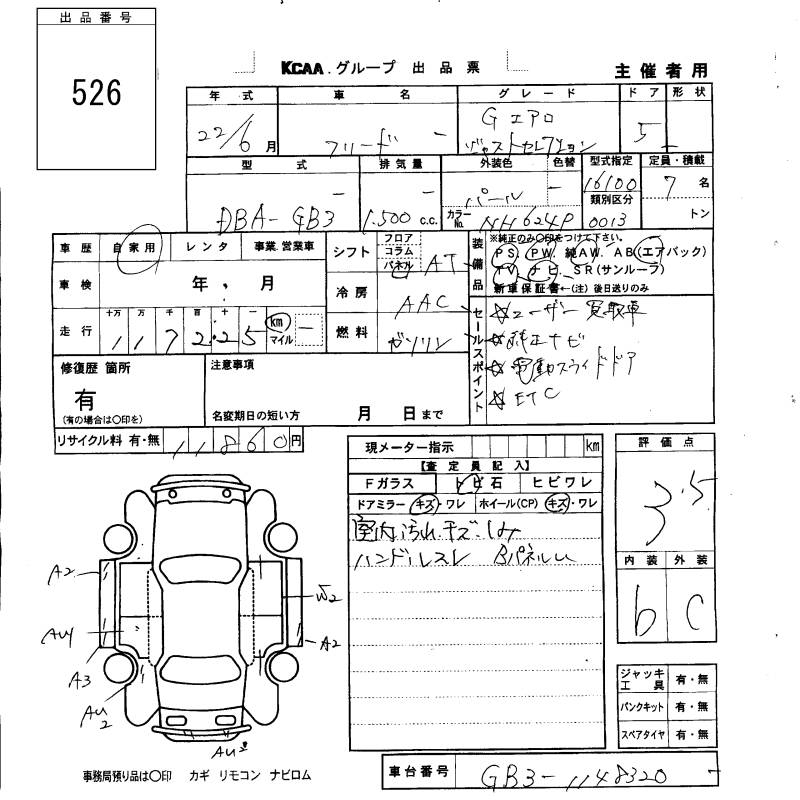 出品番号
526
KCAA.グループ 出品票
主催者用
年式 車名 グレード ドア 形状
22/6月 フリード G エアロ 5
ジャストセレクション
型式 排気量 外装色 色替 型式指定 定員・積載
DBA-GB3 1.500 c.c. パール 16100 7 名
カラーNo. NH624P 類別区分 0013 トン
車歴 自家用 レンタ 事業.営業車
シフト フロア コラム パネル AT
装備品
※純正のみ〇印をつけて下さい。
PS. PW. 純AW. AB(エアバック)
TV. ナビ. SR(サンルーフ)
新車保証書←(注)後日送りのみ
車検 年. 月
冷房 AAC
走行 十万 万 千 百 十 一
117225 km マイル
燃料 ガソリン
セールスポイント
☆ユーザー買取車
☆純正ナビ
☆電動スライドドア
☆ETC
修復歴 箇所
有
(有の場合は〇印を)
注意事項
名変期日の短い方 月 日まで
リサイクル料 有・無 11860円
現メーター指示 km
【査定員記入】
Fガラス トビ石 ヒビワレ
ドアミラー キズ・ワレ ホイール(CP) キズ・ワレ
室内汚れ.キズ.しみ
ハンドルスレ BパネルU
評価点
3.5
内装 外装
b C
A2
W2
AU1
A2
A3
AU2
AU2
ジャッキ工具 有・無
パンクキット 有・無
スペアタイヤ 有・無
事務局預り品は〇印 カギ リモコン ナビロム
車台番号 GB3-1148320